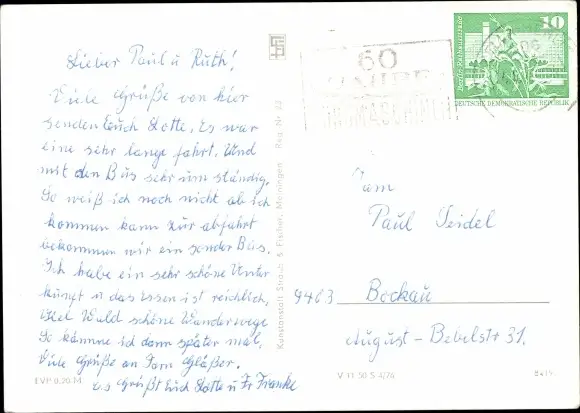 Lieber Paul u Ruth!
Viele Grüße von hier
senden Euch Lotte. Es war
eine sehr lange fahrt. Und
mit den Bus sehr um ständig.
So weiß ich noch nicht ob ich
kommen kann zur abfahrt
bekommen wir ein sonder Bus.
Ich habe ein sehr schöne Unter
kunft u das Essen ist reichlich,
Viel Wald schöne Wanderwege
So könnne ich dann später mal.
Viele Grüße an Fam Gläßer.
Es Grüßt Euch Lotte u Fr Franke
EVP 0,20 M
Kunstanstalt Straub & Fischer, Meiningen Reg. Nr. 22
60
JAHRE
10
DEUTSCHE DEMOKRATISCHE REPUBLIK
Fam
Paul Seidel
9463 Bockau
August-Bebelstr 31.
V 11 50 S 4/76